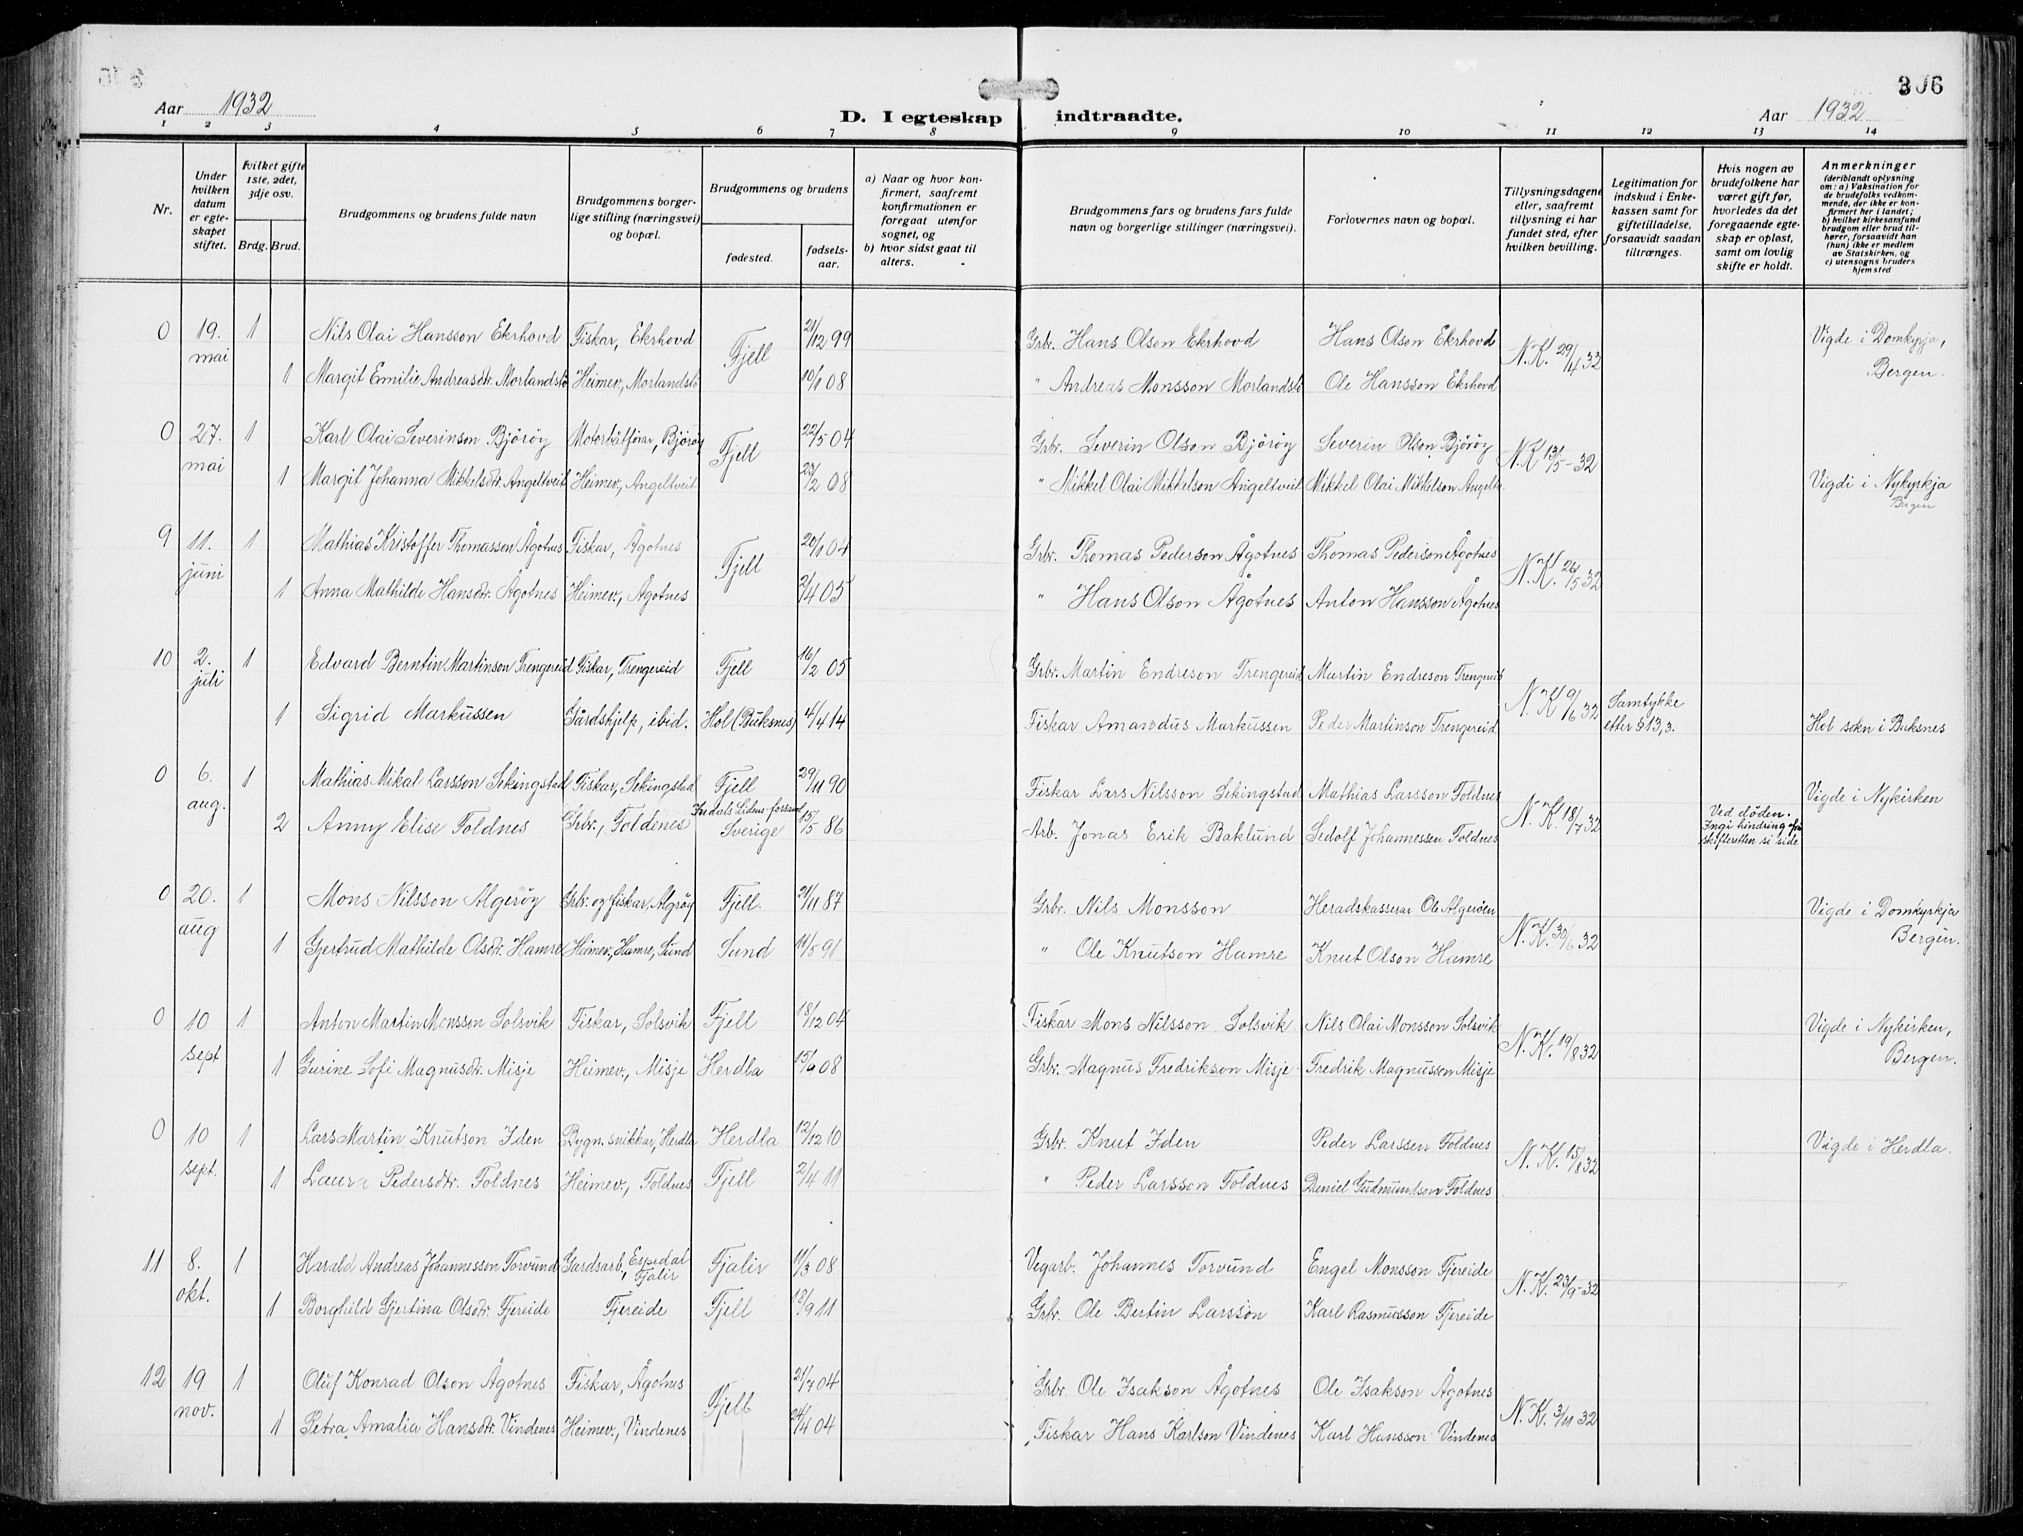 306
Aar 1932
D. I egteskap indtraadte.
Aar 1932
1 2 3 4 5 6 7 8 9 10 11 12 13 14
Nr.
Under hvilken datum er egteskapet stiftet.
hvilket gifte 1ste, 2det, 3dje osv.
Brdg. Brud.
Brudgommens og brudens fulde navn
Brudgommens borgerlige stilling (næringsvei) og bopæl.
Brudgommens og brudens
fødested.
fødselsaar.
a) Naar og hvor konfirmert, saafremt konfirmationen er foregaat utenfor sognet, og
b) hvor sidst gaat til alters.
Brudgommens fars og brudens fars fulde navn og borgerlige stillinger (næringsvei).
Forlovernes navn og bopæl.
Tillysningsdagene eller, saafremt tillysning ei har fundet sted, efter hvilken bevilling.
Legitimation for indskud i Enkekassen samt for giftetilladelse, forsaavidt saadan tiltrænges.
Hvis nogen av brudefolkene har været gift før, hvorledes da det foregaaende egteskap er opløst, samt om lovlig skifte er holdt.
Anmerkninger (deriblandt oplysning om: a) Vaksination for de brudefolks vedkommende, der ikke er konfirmert her i landet; b) hvilket kirkesamfund brudgom eller brud tilhører, forsaavidt han (hun) ikke er medlem av Statskirken, og c) utensogns bruders hjemsted
0 19. mai 1 Nils Olai Hansson Ekrhovd Fiskar, Ekrhovd Fjell 21/12 99 Grbr. Hans Olson Ekrhovd Hans Olson Ekrhovd N.K. 29/4 32 Vigde i Domkyrkja, Bergen.
1 Margit Emilie Andreasdtr. Morlandstø Heimev., Morlandstø 10/1 08 " Andreas Monsson Morlandstø Ole Hansson Ekrhovd
0 27. mai 1 Karl Olai Severinson Bjórøy Motorbåtførar, Bjórøy Fjell 22/5 04 Grbr. Severin Olson Bjórøy Severin Olson Bjórøy N.K 13/5-32
1 Margit Johanna Mikkelsdtr. Angeltveit Heimev., Angeltveit 23/2 08 " Mikkel Olai Mikkelson Angeltveit Mikkel Olai Mikkelson Angeltv. Vigdi i Nykyrkja Bergen
9 11. juni 1 Mathias Kristoffer Thomassen Ågotnes Fiskar, Ågotnes Fjell 20/1 04 Grbr. Thomas Pederson Ågotnes Thomas Pederson Ågotnes N.K. 26/5 32
1 Anna Mathilde Hansdtr. Ågotnes Heimev., Ågotnes 2/4 05 " Hans Olson Ågotnes Anton Hansson Ågotnes
10 2. juli 1 Edvard Berntin Martinson Trengereid Fiskar, Trengereid Fjell 16/2 05 Grbr. Martin Endreson Trengereid Martin Endreson Trengereid N.K 9/6 32
1 Sigrid Markussen Gårdshjelp, ibid. Hol (Buksnes) 4/4 14 Fiskar Amandus Markussen Peder Martinson Trengereid Samtykke etter § 13, 3. Hol sokn i Buksnes
0 6. aug. 1 Mathias Mikal Larsson Sekingstad Fiskar, Sekingstad Fjell 29/11 90 Fiskar Lars Nilsson Sekingstad Mathias Larsson Foldnes N.K. 18/7 32 Vigde i Nykirken
2 Anny Elise Foldnes Grbr., Foldenes Sverige 15/5 86 Arb. Jonas Erik Baklund Sedolf Johannessen Foldnes Ved døden. Ingi hindring skifteretten si side
0 20. aug 1 Mons Nilsson Algerøy Grbr. og fiskar, Algrøy Fjell. 21/11 87 Grbr. Nils Monsson Heradskasserar Ole Algerøen N.K. 30/6 32 Vigde i Domkyrkja Bergen.
1 Gjertrud Mathilde Olsdtr. Hamre Heimev., Hamre, Sund Sund 14/5 91 " Ole Knutson Hamre Knut Olson Hamre
0 10 sept 1 Anton Martin Monsson Solsvik Fiskar, Solsvik Fjell 18/12 04 Fiskar Mons Nilsson Solsvik Nils Olai Monsson Solsvik N.K. 19/8 32 Vigde i Nykirken, Bergen.
1 Gurine Sofi Magnusdtr. Misje Heimev., Misje Herdla 15/9 08 Grbr. Magnus Fredrikson Misje Fredrik Magnusson Misje
0 10 sept. 1 Lars Martin Knutson Iden Bygn. snikkar, Herdla Herdla 12/12 10 Grbr. Knut Iden Peder Larssen Foldnes N.K. 15/8 32 Vigde i Herdla.
1 Laura Pedersdtr. Foldnes Heimev., Foldnes Fjell 2/4 11 " Peder Larsson Foldnes Daniel Gudmundson Foldnes
11 8. okt. 1 Harald Andreas Johannesson Torvund Gardsarb., Espedal Fjalir Fjalir 11/3 08 Vegarb. Johannes Torvund Engel Monsson Fjereide N.K. 23/9-32
1 Borghild Gjertina Olsdtr. Fjereide Fjereide Fjell 12/9 11 Grbr. Ole Bertin Larsson Karl Rasmusson Fjereide
12 19 nov. 1 Oluf Konrad Olson Ågotnes Fiskar, Ågotnes Fjell 21/7 04 Grbr. Ole Isakson Ågotnes Ole Isakson Ågotnes N.K. 3/11 32
1 Petra Amalia Hansdtr. Vindenes Heimev., Vindenes 24/4 04 Fiskar Hans Karlson Vindenes Karl Hansson Vindenes